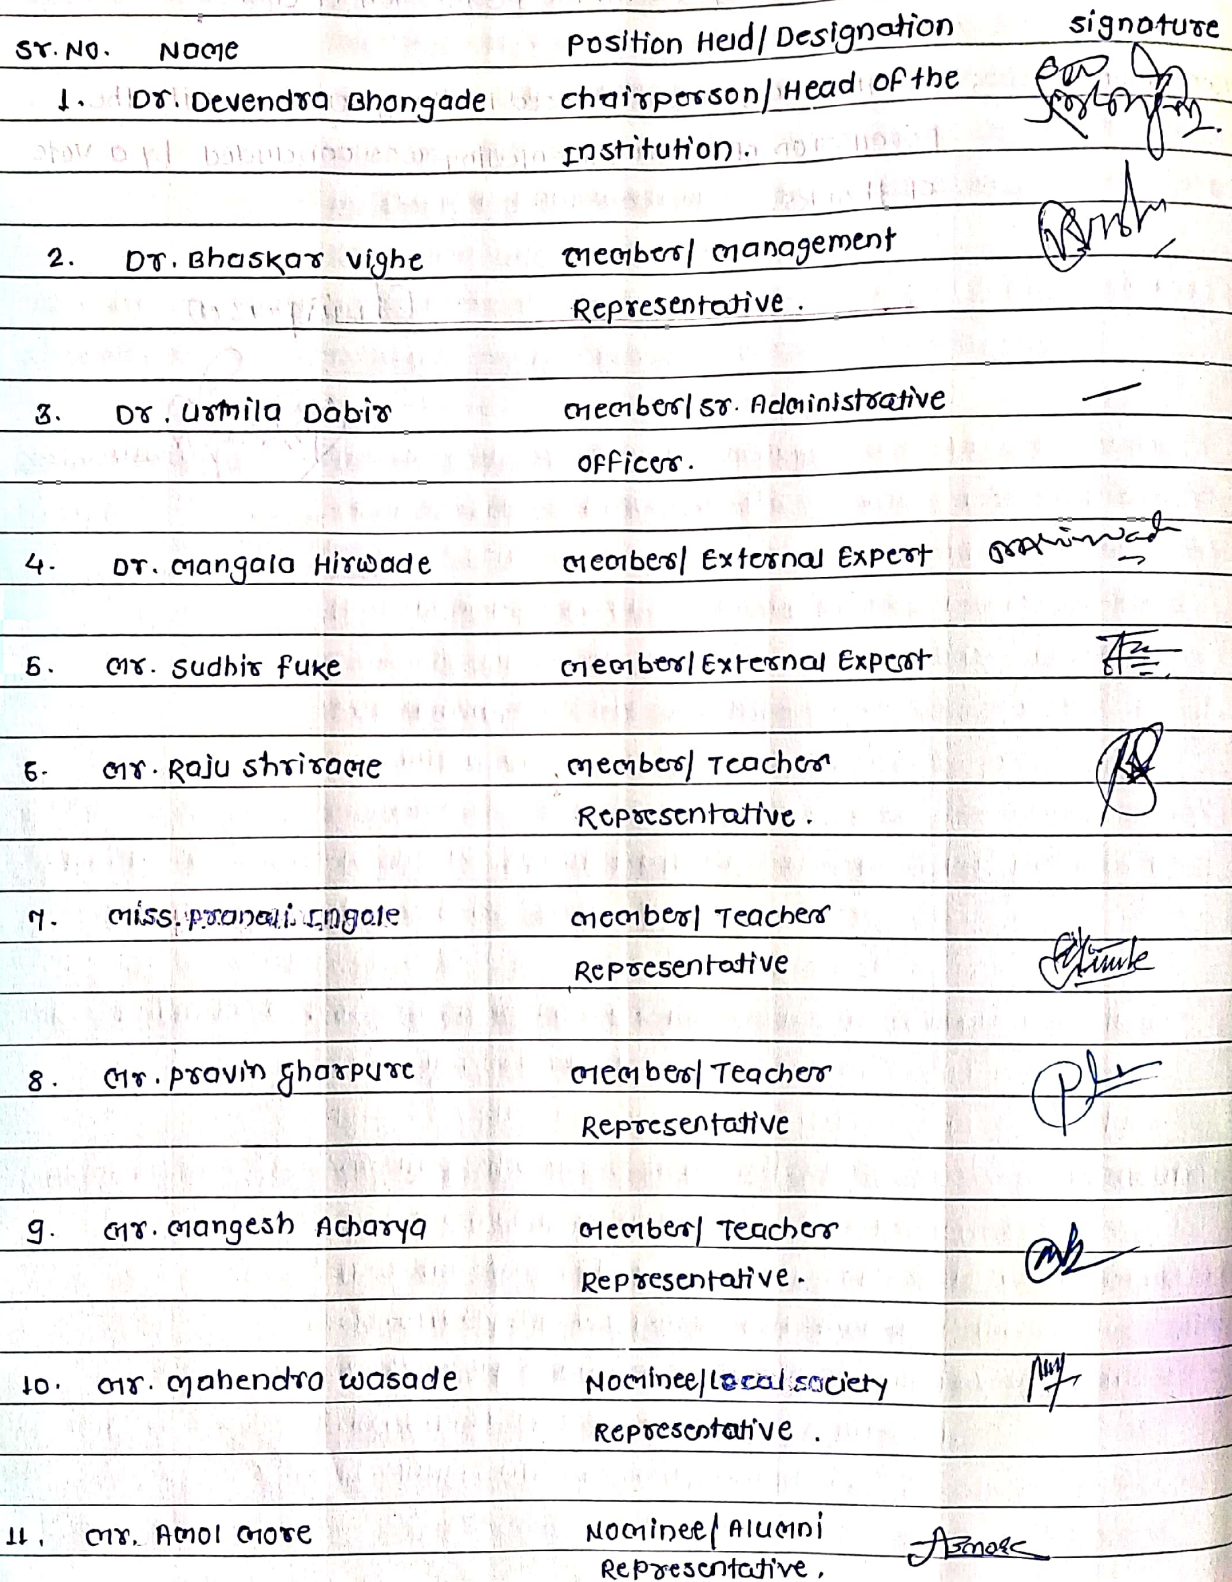 Sr. No. Name Position Held/ Designation signature
1. Dr. Devendra Bhongade chairperson/ Head of the
Institution.
2. Dr. Bhaskar Vighe member/ management
Representative.
3. Dr. Urmila Dabir member/ Sr. Administrative —
officer.
4. Dr. Mangala Hirwade member/ External Expert
5. Mr. Sudhir Fuke member/ External Expert
6. Mr. Raju Shrirame member/ Teacher
Representative.
7. Miss. Pranali Ingole member/ Teacher
Representative
8. Mr. Pravin Gharpure member/ Teacher
Representative
9. Mr. Mangesh Acharya member/ Teacher
Representative.
10. Mr. Mahendra Wasade Nominee/Local society
Representative.
11. Mr. Amol More Nominee/ Alumni Asmore
Representative.